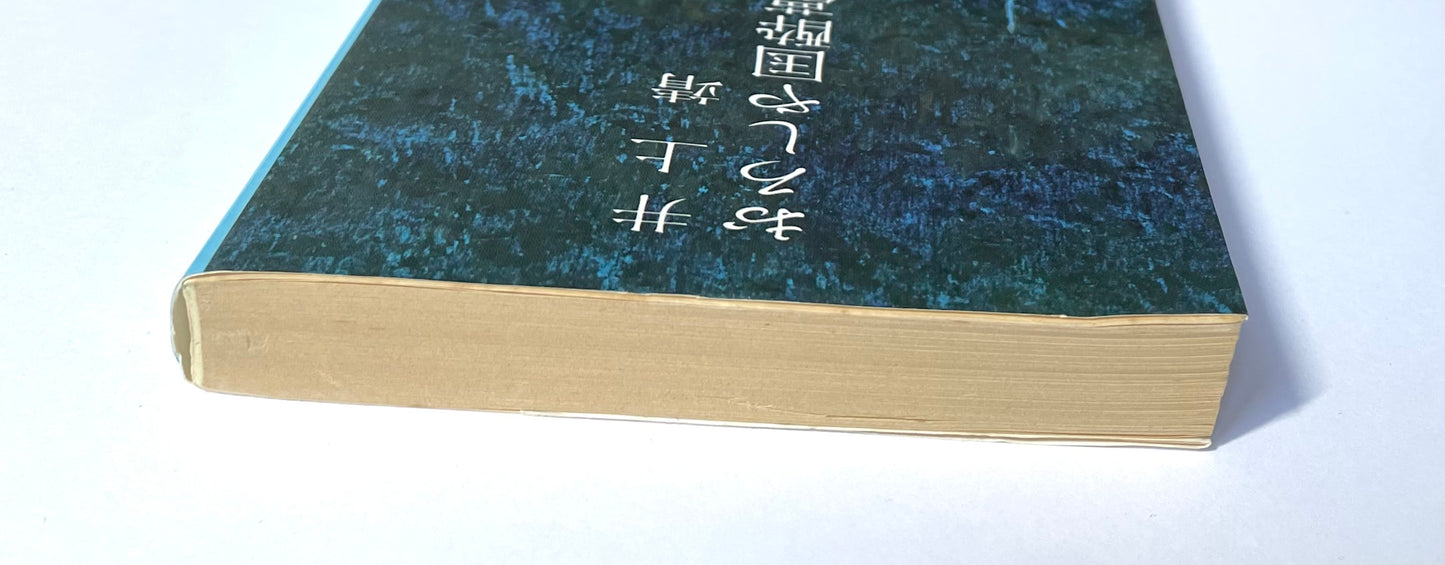 井上靖
おろしや国酔